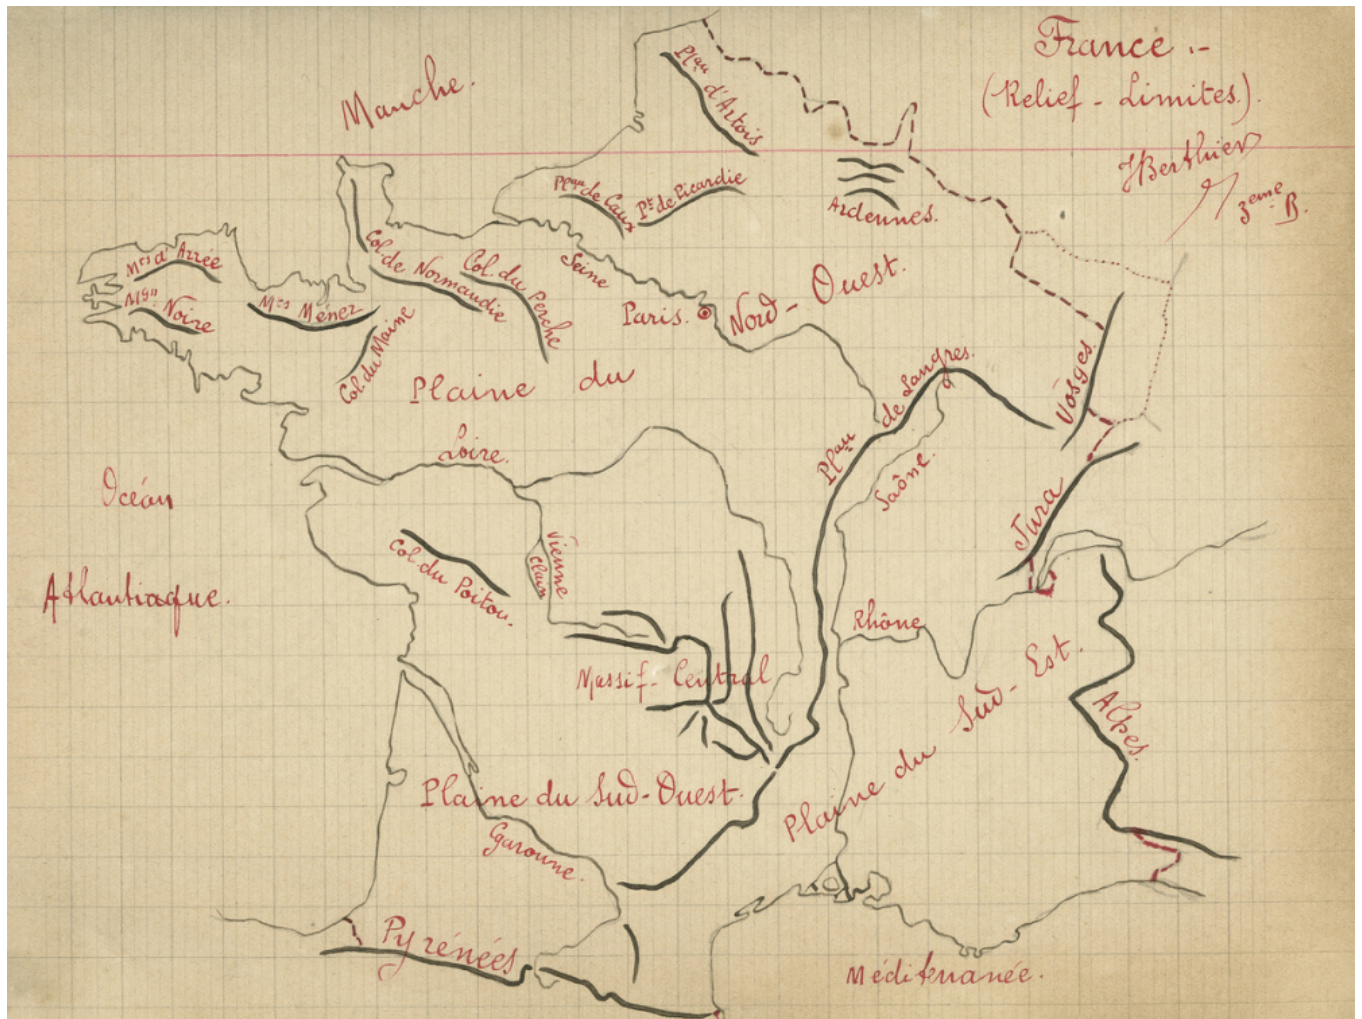 France.-
(Relief - Limites).
HBerthier
3eme B.
Manche.
Plau d'Artois
Plau de Caux
Pt de Picardie
Ardennes.
Mts d'Arrée
Mgn Noire
Mts Ménez
Col. de Normandie
Col. du Perche
Col. du Maine
Seine
Paris.
Nord-Ouest.
Plaine du
Plau de Langres.
Vosges.
Loire.
Saône.
Jura
Océan
Atlantiaque.
Col. du Poitou.
Vienne
Clain
Rhône
Massif-Central
Sud-Est.
Alpes.
Plaine du Sud-Ouest.
Plaine du
Garoune.
Pyrénées
Méditerranée.